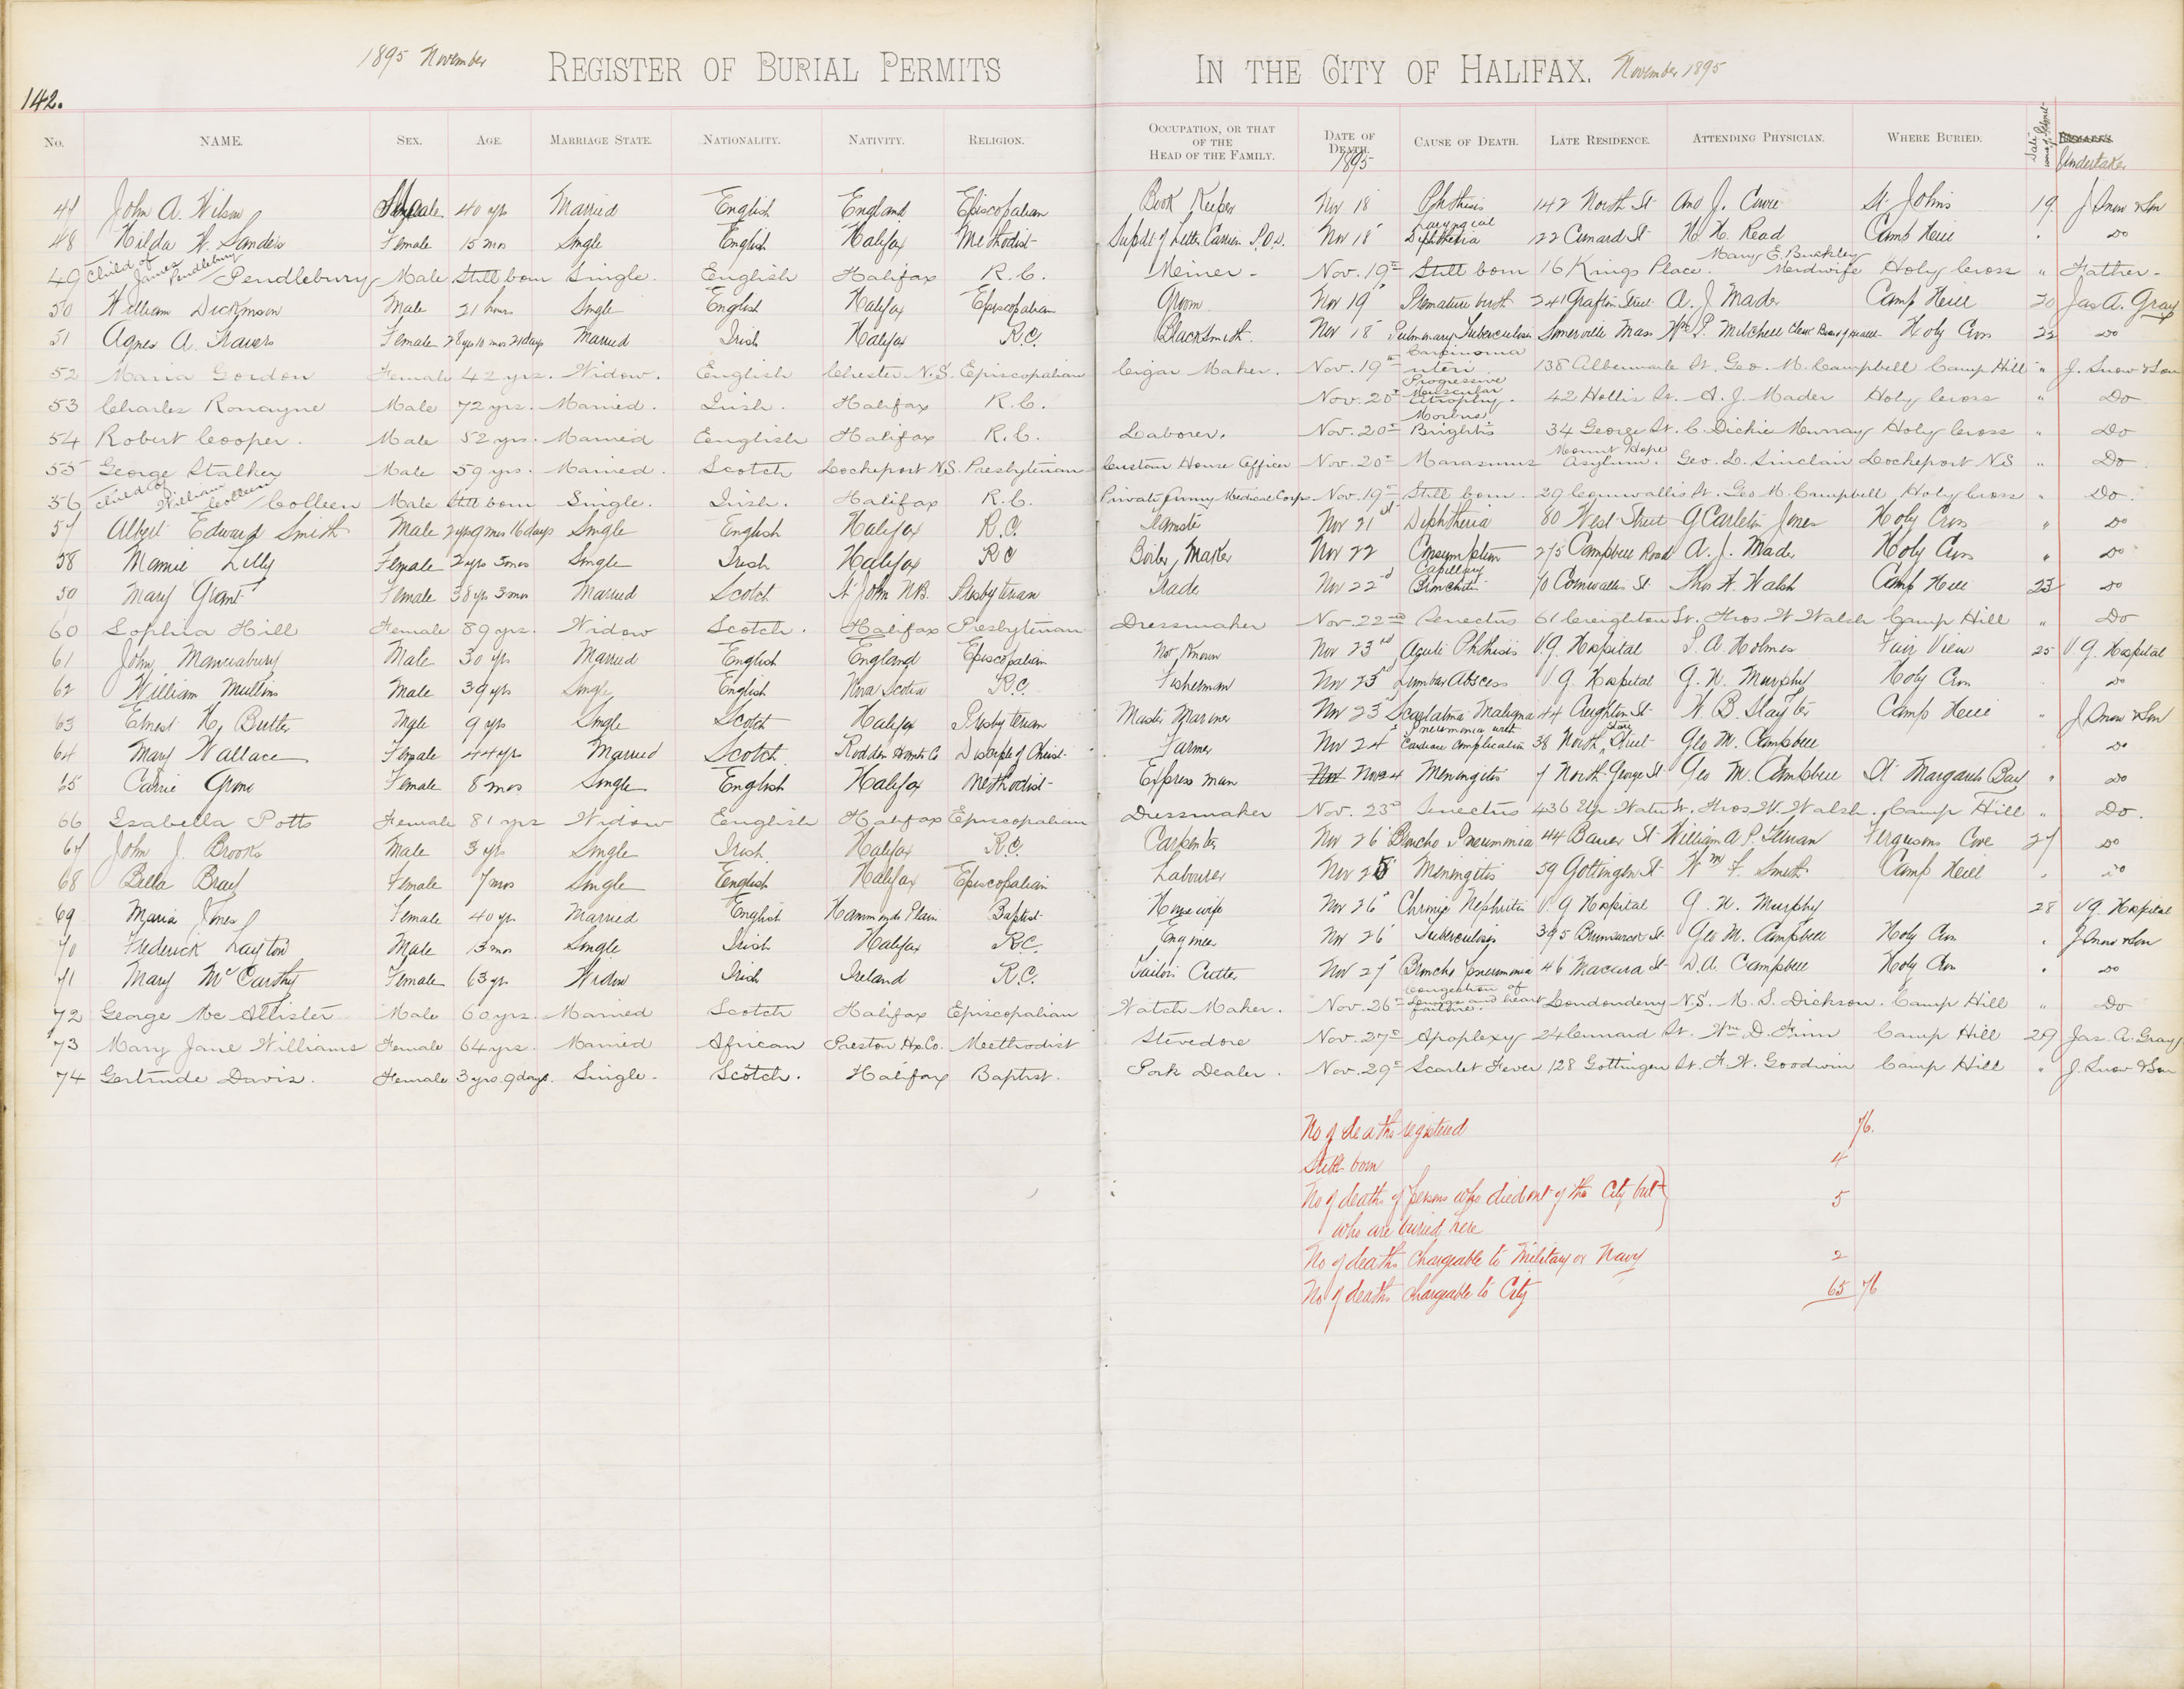 1895 November REGISTER OF BURIAL PERMITS IN THE CITY OF HALIFAX. November 1895
142.
No. NAME. SEX. AGE. MARRIAGE STATE. NATIONALITY. NATIVITY. RELIGION. OCCUPATION, OR THAT OF THE HEAD OF THE FAMILY. DATE OF DEATH. 1895 CAUSE OF DEATH. LATE RESIDENCE. ATTENDING PHYSICIAN. WHERE BURIED. Undertaker
47 John A. Wilson Male 40 yrs Married English England Episcopalian Book Keeper Nov 18 Phthisis 142 North St And J. Cowie St Johns 19 J Snow & Son
48 Hilda W. Sanders Female 15 mos Single English Halifax Methodist Supdt of Letter Carriers P.O.D. Nov 18 Laryngical Diphtheria 122 Cunard St H. H. Read Camp Hill " Do
49 Child of James Pendlebury Pendlebury Male Still born Single. English Halifax R.C. Meiner - Nov. 19th Still born 16 Kings Place. Mary E. Buckley Merdwife Holy Cross " Father -
50 William Dickinson Male 21 hours Single English Halifax Episcopalian Groom Nov 19 Premature birth 241 Grafton Street A. J Mader Camp Hill 20 Jas A. Gray
51 Agnes A. Travers Female 28 yrs 10 mos 21 days Married Irish Halifax R.C. Blacksmith. Nov 18 Pulmonary Tuberculosis Somerville Mass Wm P. Mitchell Clerk Board of Health Holy Cross 22 Do
52 Maria Gordon Female 42 yrs. Widow. English Chester N.S. Episcopalian Cigar Maker. Nov. 19th Carsinoma uteri 138 Albermarle St. Geo. M. Campbell Camp Hill " J. Snow & Son
53 Charles Ronayne Male 72 yrs. Married. Irish. Halifax R.C. Nov. 20th Progressive Muscular Attrophy. 42 Hollis St. A. J. Mader Holy Cross " Do
54 Robert Cooper. Male 52 yrs. Married English Halifax R.C. Laborer. Nov. 20th Morbus Brightis 34 George St. C. Dickie Murray Holy Cross " Do
55 George Stalker Male 59 yrs. Married. Scotch Lockeport N.S. Presbyterian Custom House Officer Nov. 20th Marasmus Mount Hope Asylum. Geo. L. Sinclair Lockeport N.S " Do
56 Child of William Colleen Colleen Male Still born Single. Irish. Halifax R.C. Private Army Medical Corps Nov. 19th Still born. 29 Cornwallis St. Geo M. Campbell Holy Cross " Do.
57 Albert Edward Smith Male 2 yrs 9 mos 16 days Single English Halifax R.C. Nov 21st Diphtheria 80 West Street G Carleton Jones Holy Cross " Do
58 Mamie Lilly Female 2 yrs 5 mos Single Irish Halifax RC Boiler Maker Nov 22 Consumption 275 Campbell Road A. J. Mader Holy Cross " Do
59 Mary Grant Female 38 yrs 3 mos Married Scotch St John N.B. Presbyterian Trader Nov 22nd Capillary Bronchitis 70 Cornwallis St Thos W. Walsh Camp Hill 23 Do
60 Sophia Hill Female 89 yrs. Widow Scotch. Halifax Presbyterian Dressmaker Nov. 22nd Senectus 61 Creighton St. Thos W Walsh Camp Hill " Do
61 John Female Male 30 yrs Married English England Episcopalian Not Known Nov 23rd Acute Phthisis V.G. Hospital S. A. Holmes Fair View 25 V. G. Hospital
62 William Mullins Male 39 yrs Single English Nova Scotia R.C. Fisherman Nov 23rd Lumbar Abscess V. G. Hospital G. W. Murphy Holy Cross Do
63 Ernest H. Butler Male 9 yrs Single Scotch Halifax Presbyterian Master Mariner Nov 23 Scarlatina Maligna 44 Creighton St W. B. Slayter Camp Hill " J Snow & Son
64 Mary Wallace Female 44 yrs Married Scotch Rodden Hants Co Disciple of Christ Farmer Nov 24 Pneumonia with Cardiac complication 38 North Street Geo M. Campbell Do
65 Carrie Grono Female 8 mos Single English Halifax Methodist Express man Nov 24 Meningitis 7 North George St Geo M. Campbell St Margarets Bay " Do
66 Isabella Potts Female 81 yrs Widow English Halifax Episcopalian Dressmaker Nov. 23rd Senectus 436 Up. Water St. Thos. W. Walsh. Camp Hill " Do.
67 John J. Brooks Male 3 yrs Single Irish Halifax R.C. Carpenter Nov 26 Broncho Pneumonia 44 Bauer St William A P. Fergusons Cove 27 Do
68 Bella Bray Female 7 mos Single English Halifax Episcopalian Labourer Nov 25 Meningitis 59 Gottingen St Wm F. Smith Camp Hill " Do
69 Maria Jones Female 40 yrs Married English Hammonds Plain Baptist House wife Nov 26 Chronic Nephritis V. G Hospital G. W. Murphy 28 V G. Hospital
70 Frederick Layton Male 13 mos Single Irish Halifax R.C. Engineer Nov 26 Tuberculosis 395 Brunswick St Geo M. Campbell Holy Cross " J Snow & Son
71 Mary McCarthy Female 63 yrs Widow Irish Ireland R.C. Tailors Cutter Nov 27 Broncho pneumonia 46 Macara St D. A. Campbell Holy Cross " Do
72 George Mc Allister Male 60 yrs. Married Scotch Halifax Episcopalian Watch Maker. Nov. 26th Congestion of Lungs and heart failure. Londonderry N.S. M. S. Dickson. Camp Hill " Do
73 Mary Jane Williams Female 64 yrs. Married African Preston Hx. Co. Meethodist Stevedore Nov. 27th Apoplexy 24 Cunnard St. Wm. D. Finn Camp Hill 29 Jas. A. Gray
74 Gertrude Davis. Female 3 yrs. 9 days. Single. Scotch. Halifax Baptist. Pork Dealer. Nov. 29th Scarlet Fever 128 Gottingen St. F. W. Goodwin Camp Hill " J. Snow & Son
No of deaths registered 76.
Still born 4
No of deaths of persons who died out of the City but 5
who are buried here
No of deaths chargeable to Military or Navy 2
No of deaths chargeable to City 65 76